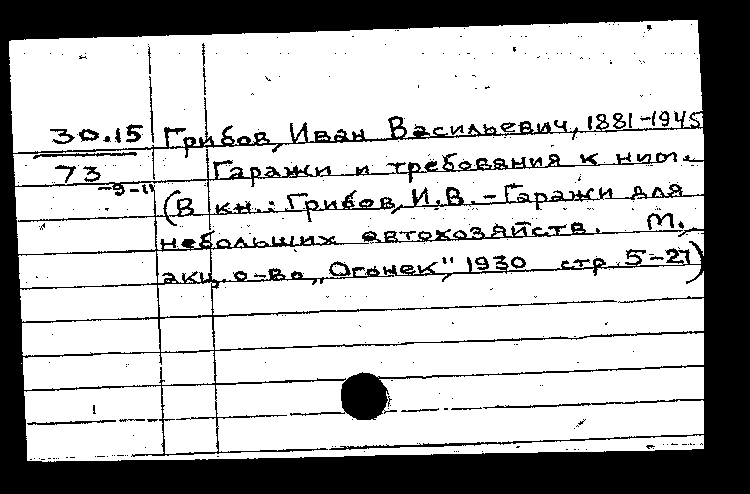 30.15 Грибов, Иван Васильевич, 1881-1945
73 Гаражи и требования к ним.
-9-11 (В кн.: Грибов, И.В. - Гаражи для
небольших автохозяйств. М.
акц. о-во „Огонек", 1930 стр. 5-21)